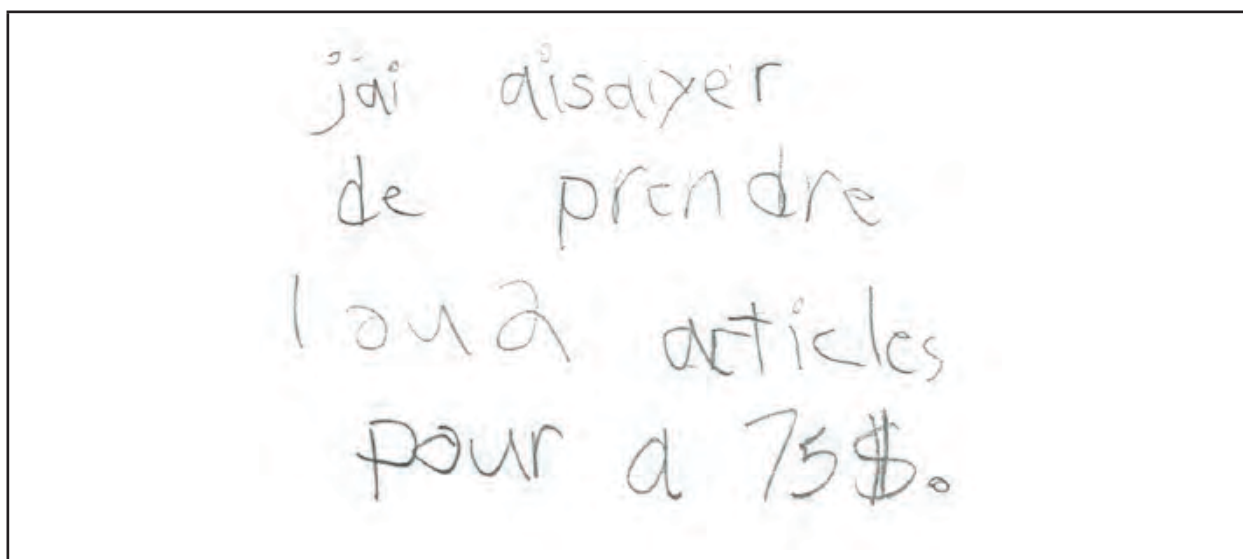 jai aisaiyer
de prendre
1 ou 2 articles
pour a 75$.